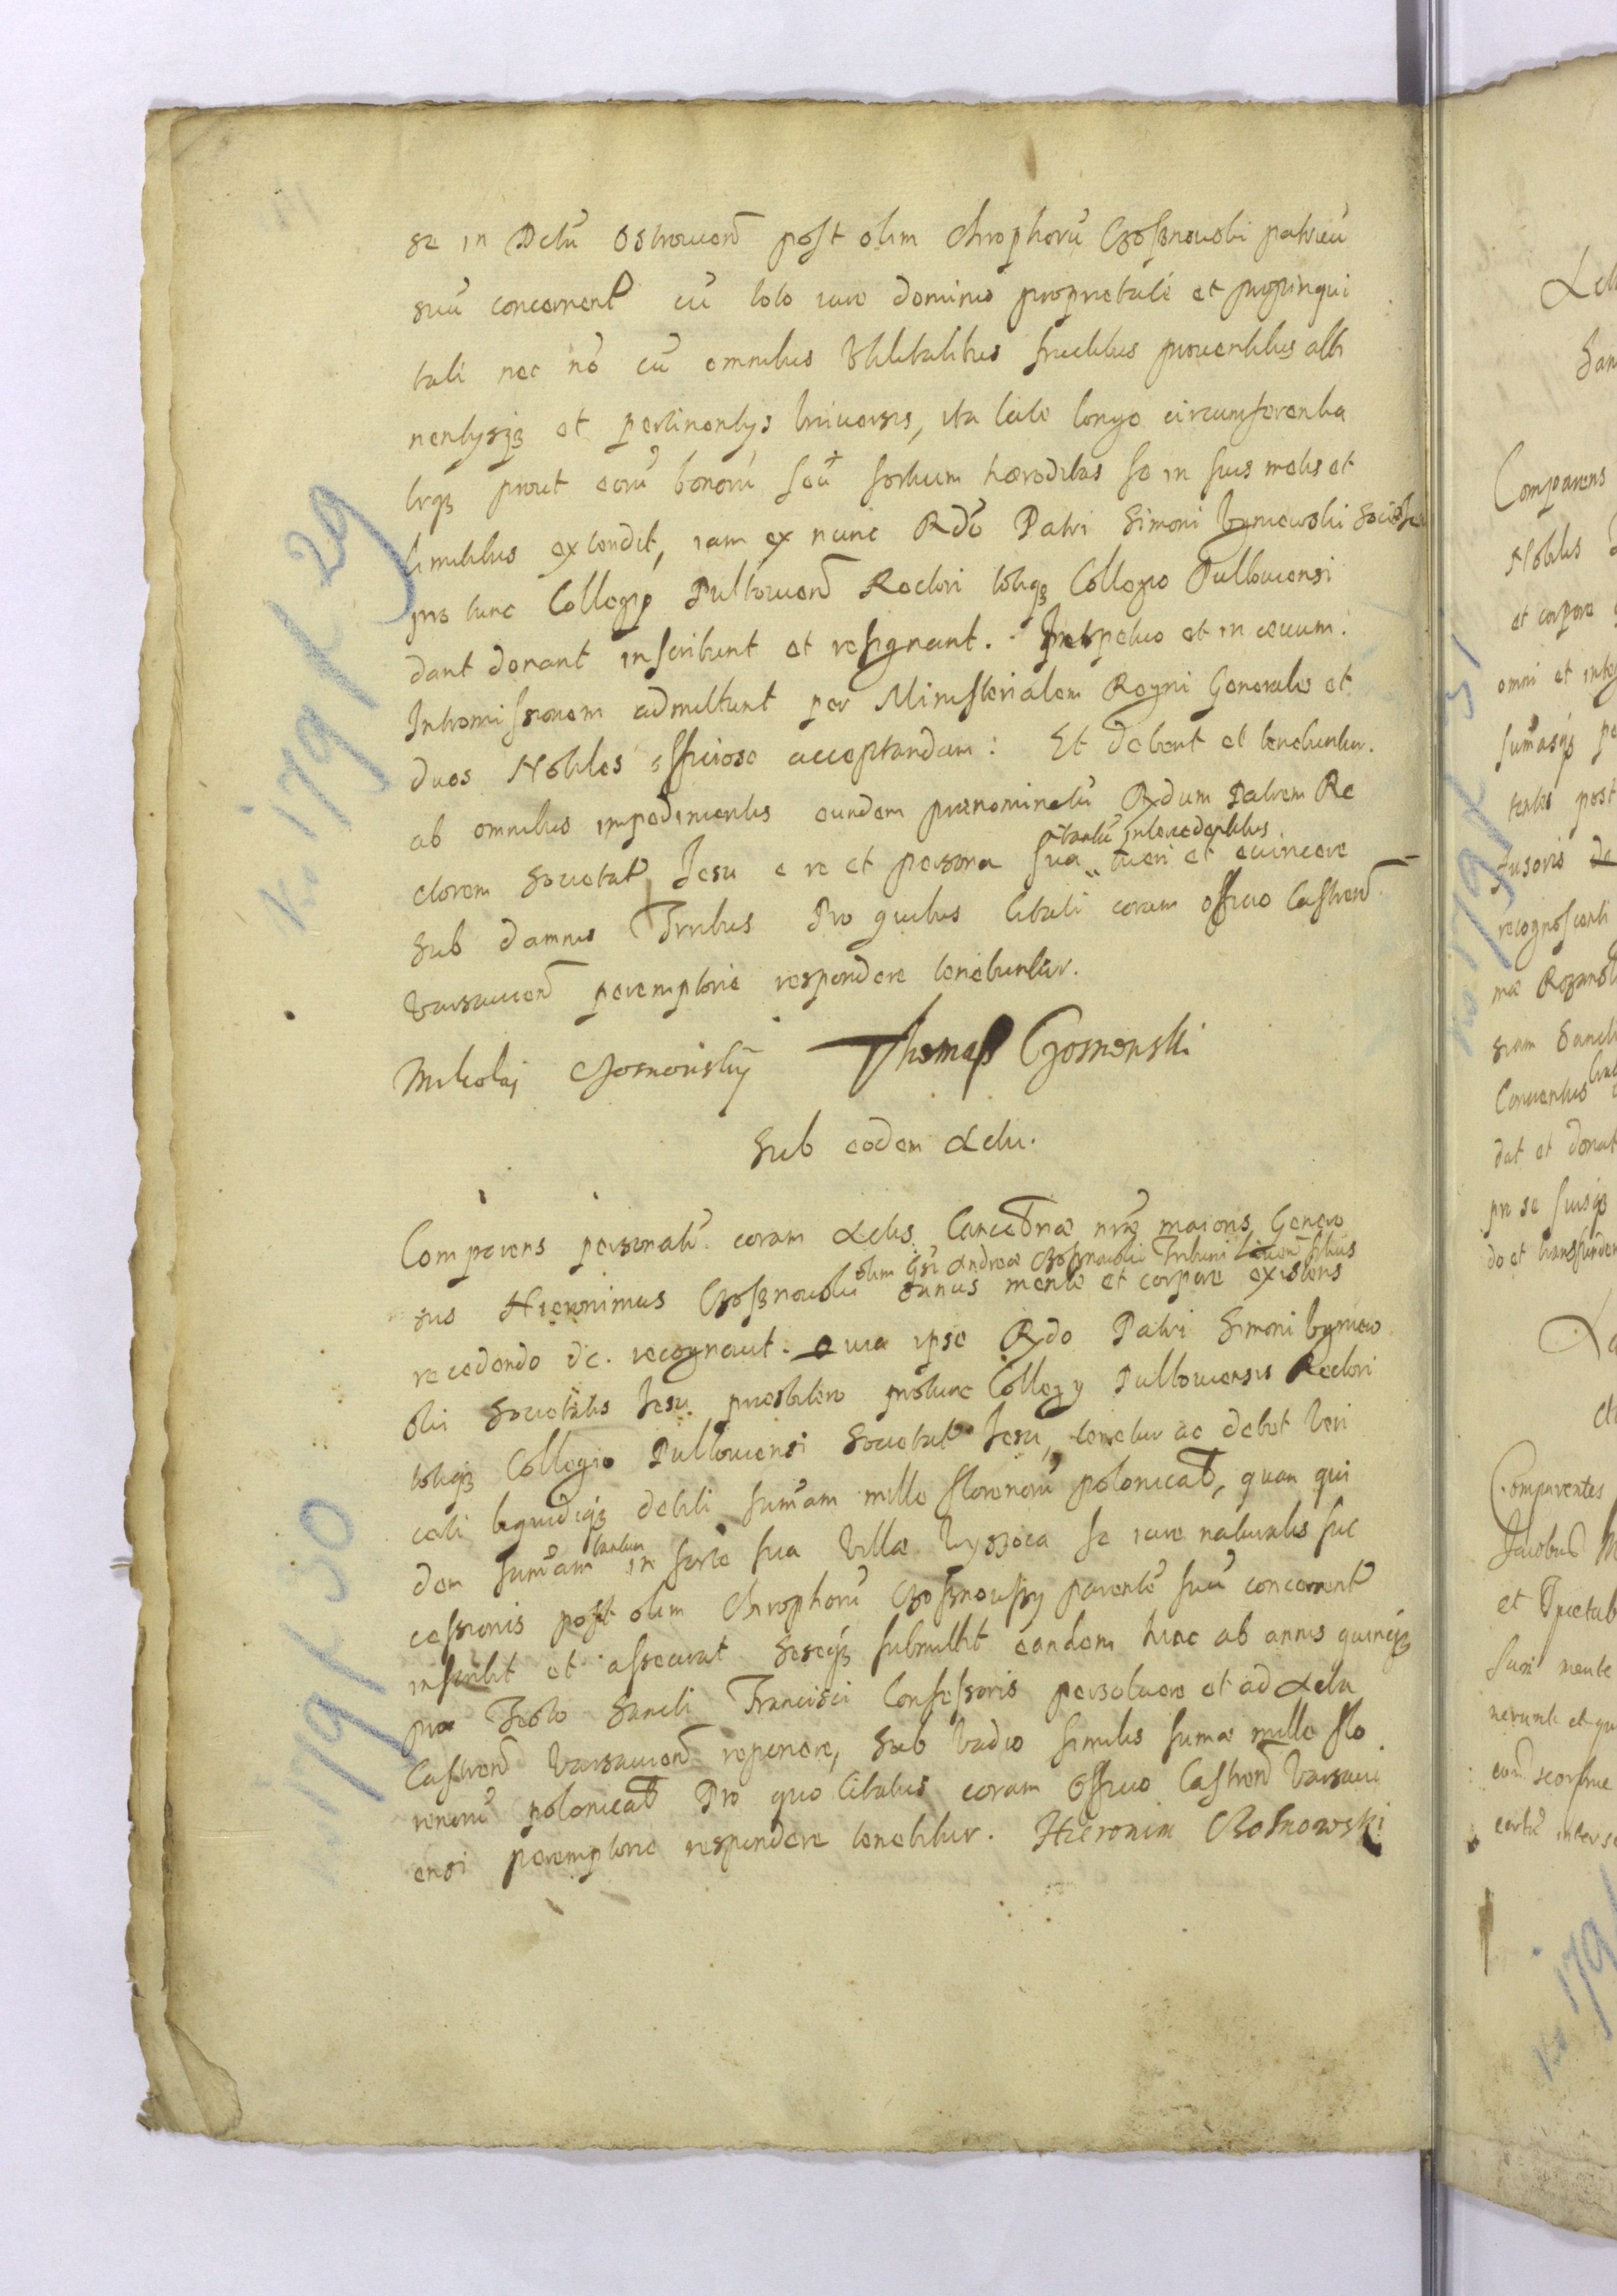 se in Dctu Ostrovien post olim Chrophorũ Czosznowski patruũ
suũ concernen cũ toto iure dominio proprietate et propinqui
tate nec nõ cũ omnibus Vtilitatibus fructibus prouentibus atti
nentysqz et pertinentys vniuersis, ita late longe circumferentia
litqz prout eorũ bonorũ seũ sortium hæreditas se in suis metis et
limitibus extendit, iam ex nunc Rdo Patri Simoni Societ
pro tunc Collegy Pultouien Rectori totiqz Collegio Pultouiensi
dant donant inscribunt et resignant. Perpetuo et in æuum.
Intromissionem admittunt per Ministerialem Regni Generale et
duos Nobiles officiose acceptandam: Et debent et tenebuntur
ab omnibus impedimentis eundem prænominatũ Rxdum Patrem Re
ctorem Societat Jesu e re et persona sua tantũ intercedentibus tueri et euincere
Sub damnis Trribus Pro quibus Citati coram officio Castren
Varsauien peremptorie respondere tenebuntur.
Mikołaj Czosnowsky Thomas Czosnowski
Sub eodem Actu.
Comparens personalr coram Actis Cancellriæ nræ maioris Genero
sus Hieronimus Czosznowski olim Gsi Andreæ Czosznowski Tribuni Liuen filius sanus mente et corpore existens
recedendo &c. recognouit. Quia ipse Rxdo Patri Simoni
ski Societatis Jesu præsbitero protunc Collegy Pultouiensis Rectori
totiqz Collegio Pultouiensi Societat Jesu, tenetur ac debet Veri
cati liquidiqz debiti sum̃am mille florenorũ polonicał, quam qui
dem sum̃am tantum in sorte sua Villæ Wyssoca se iure naturalis suc
cessionis post olim Chrophorũ Czosznowsky parentẽ suũ concernen
inscribit et assecurat Seseqz submittit eandem hinc ab annis quinqz
pro Festo Sancti Francisci Confessoris persoluere et ad Acta
Castren Varsauien reponere, Sub Vadio similis sumæ mille flo
renorũ polonicał Pro quo Citatus coram Officio Castren Varsaui
ensi peremptorie respondere tenebitur. Hieronim Czosnowski
No 179 k 29
No 179 k 30
No 179 k 31
Comparens
Nobilis
et corpore
omni et integ
sum̃asqz
post
fusoris de
recognoscenti
Conuentus
dat et donat
pro se suisqz
do et transfunden
Comparentes
Jacobus
et
Sani mente
nerunt et
inter se
No 179